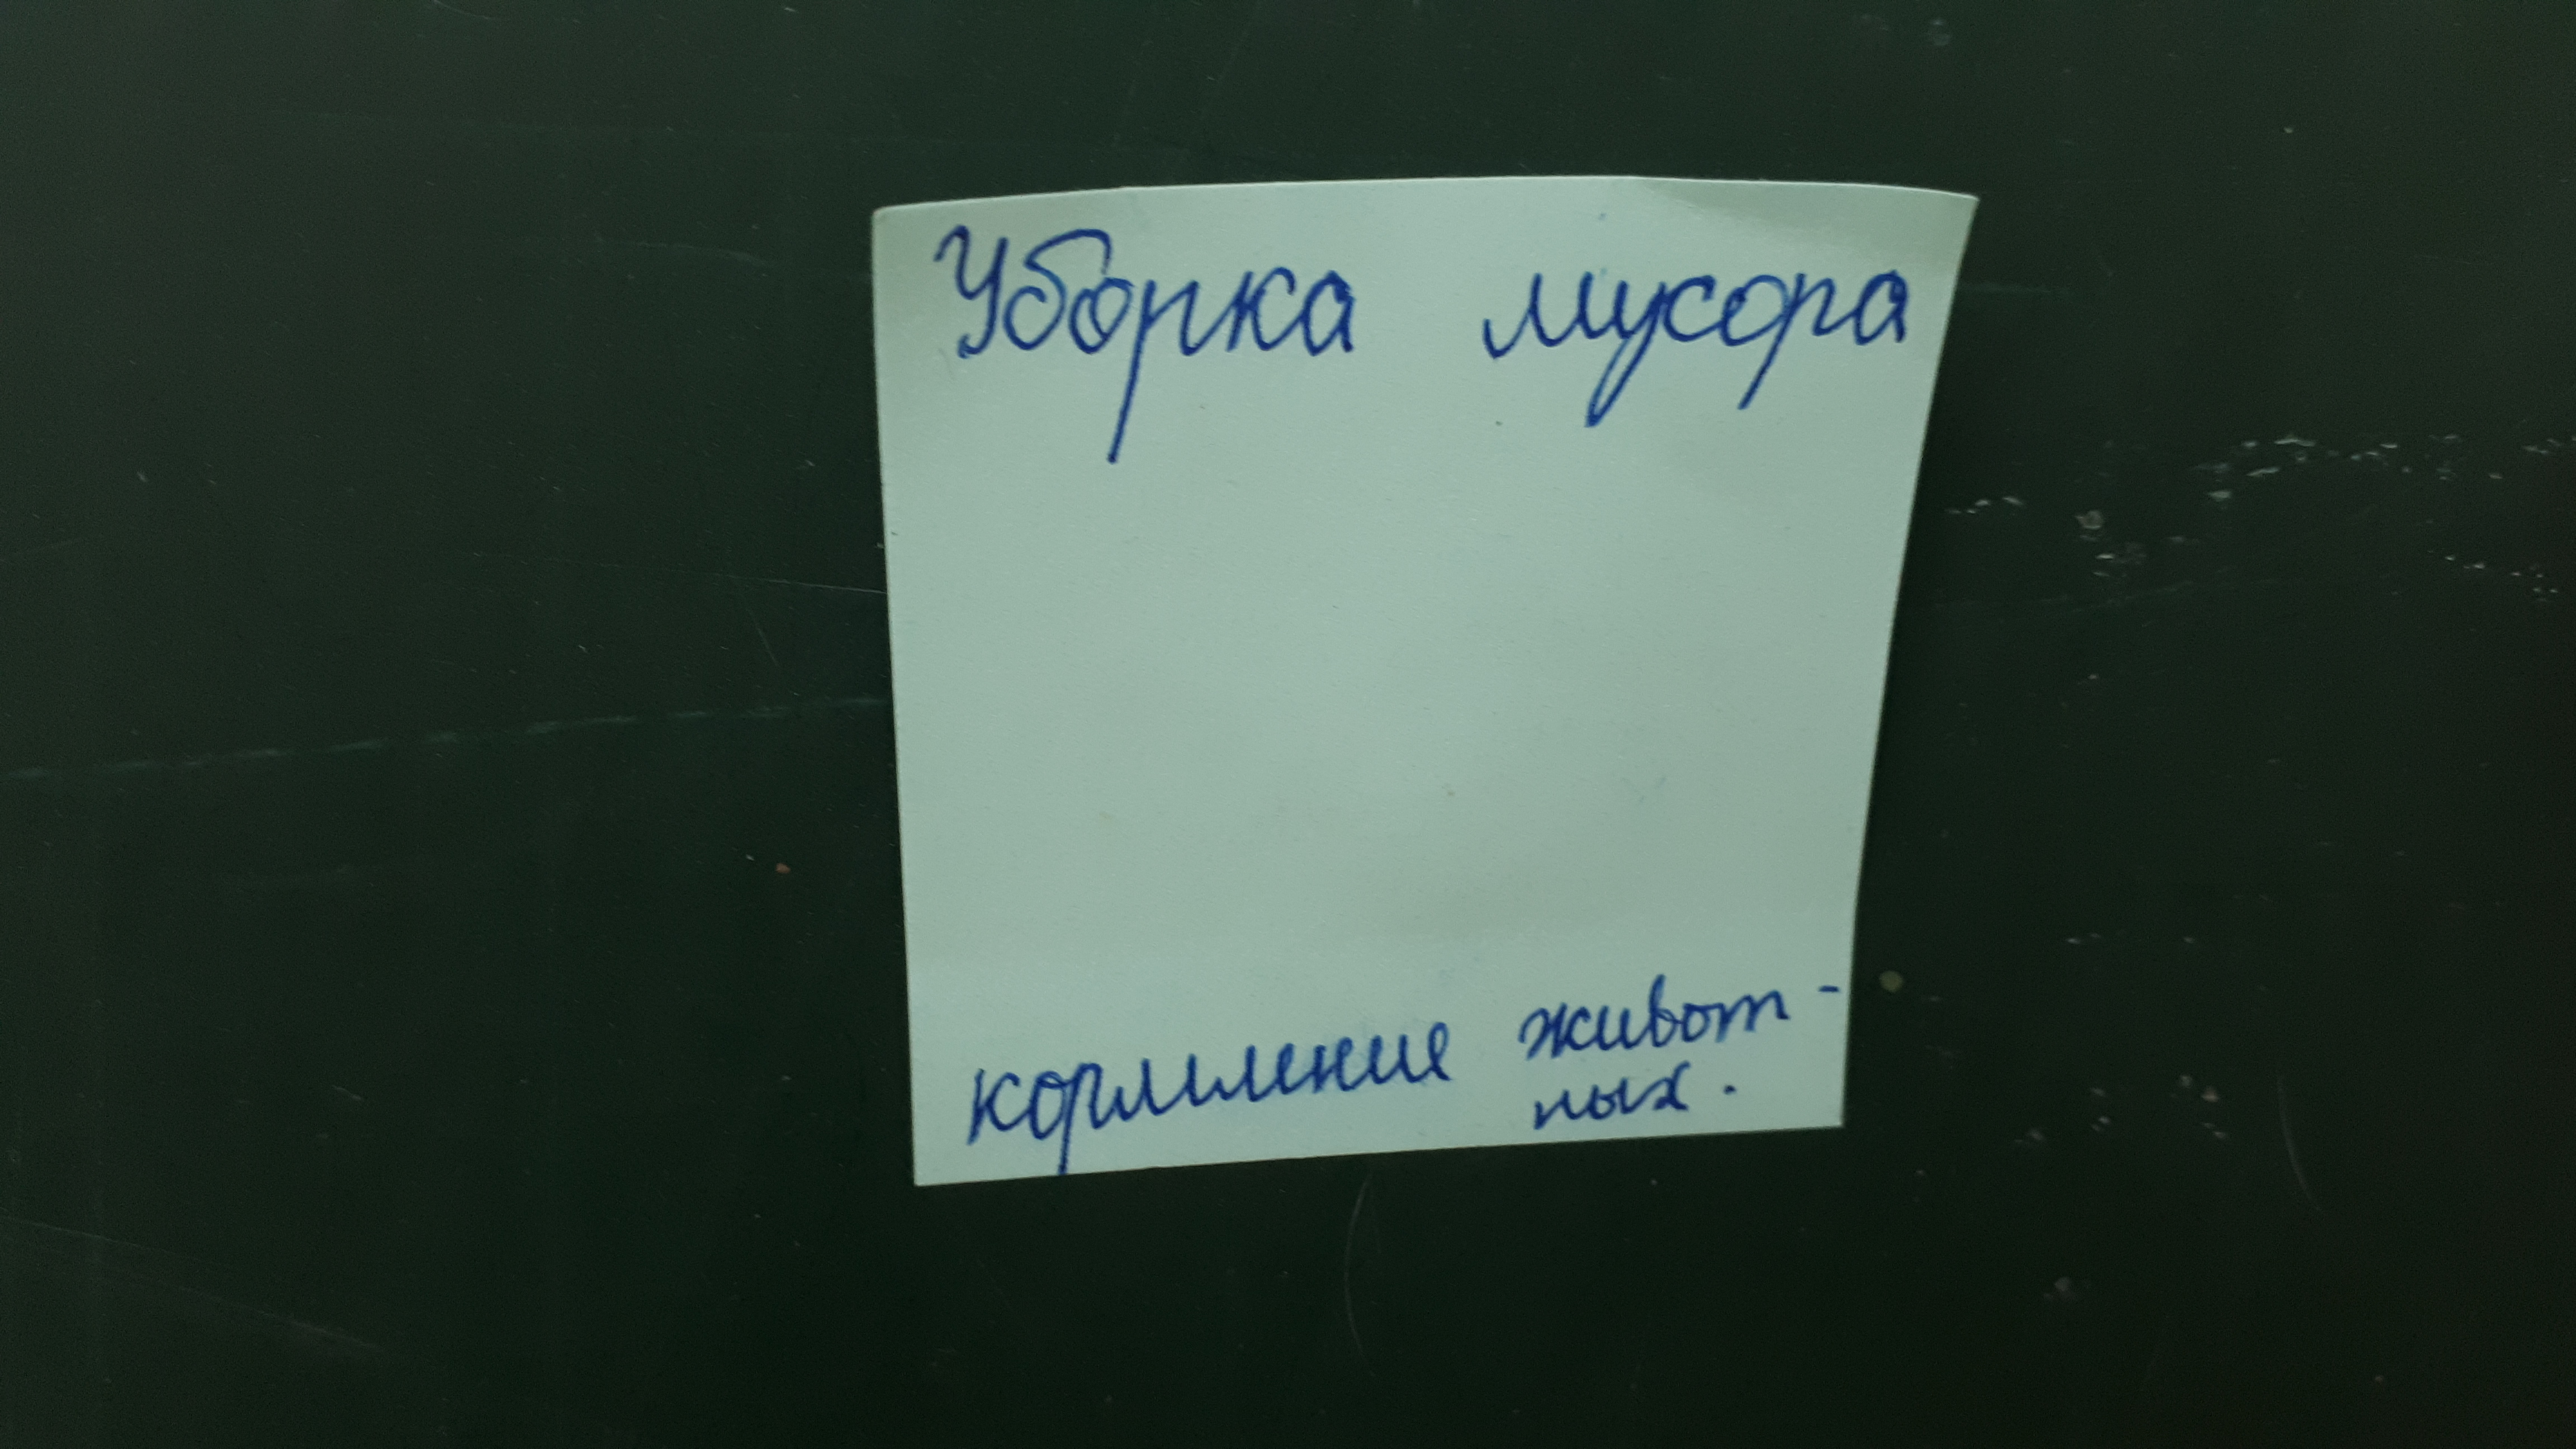 Уборка мусора
кормление живот-
ных.